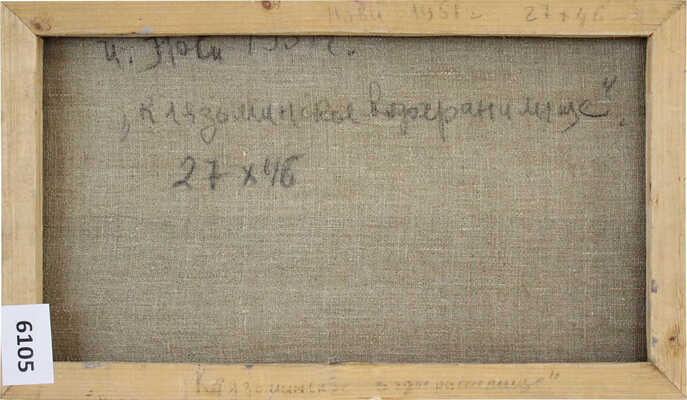 Нови 1951 г. 27 х 46
И. Нови 1951 г.
„Клязьминское водохранилище".
27 х 46
6105
„Клязьминское водохранилище"